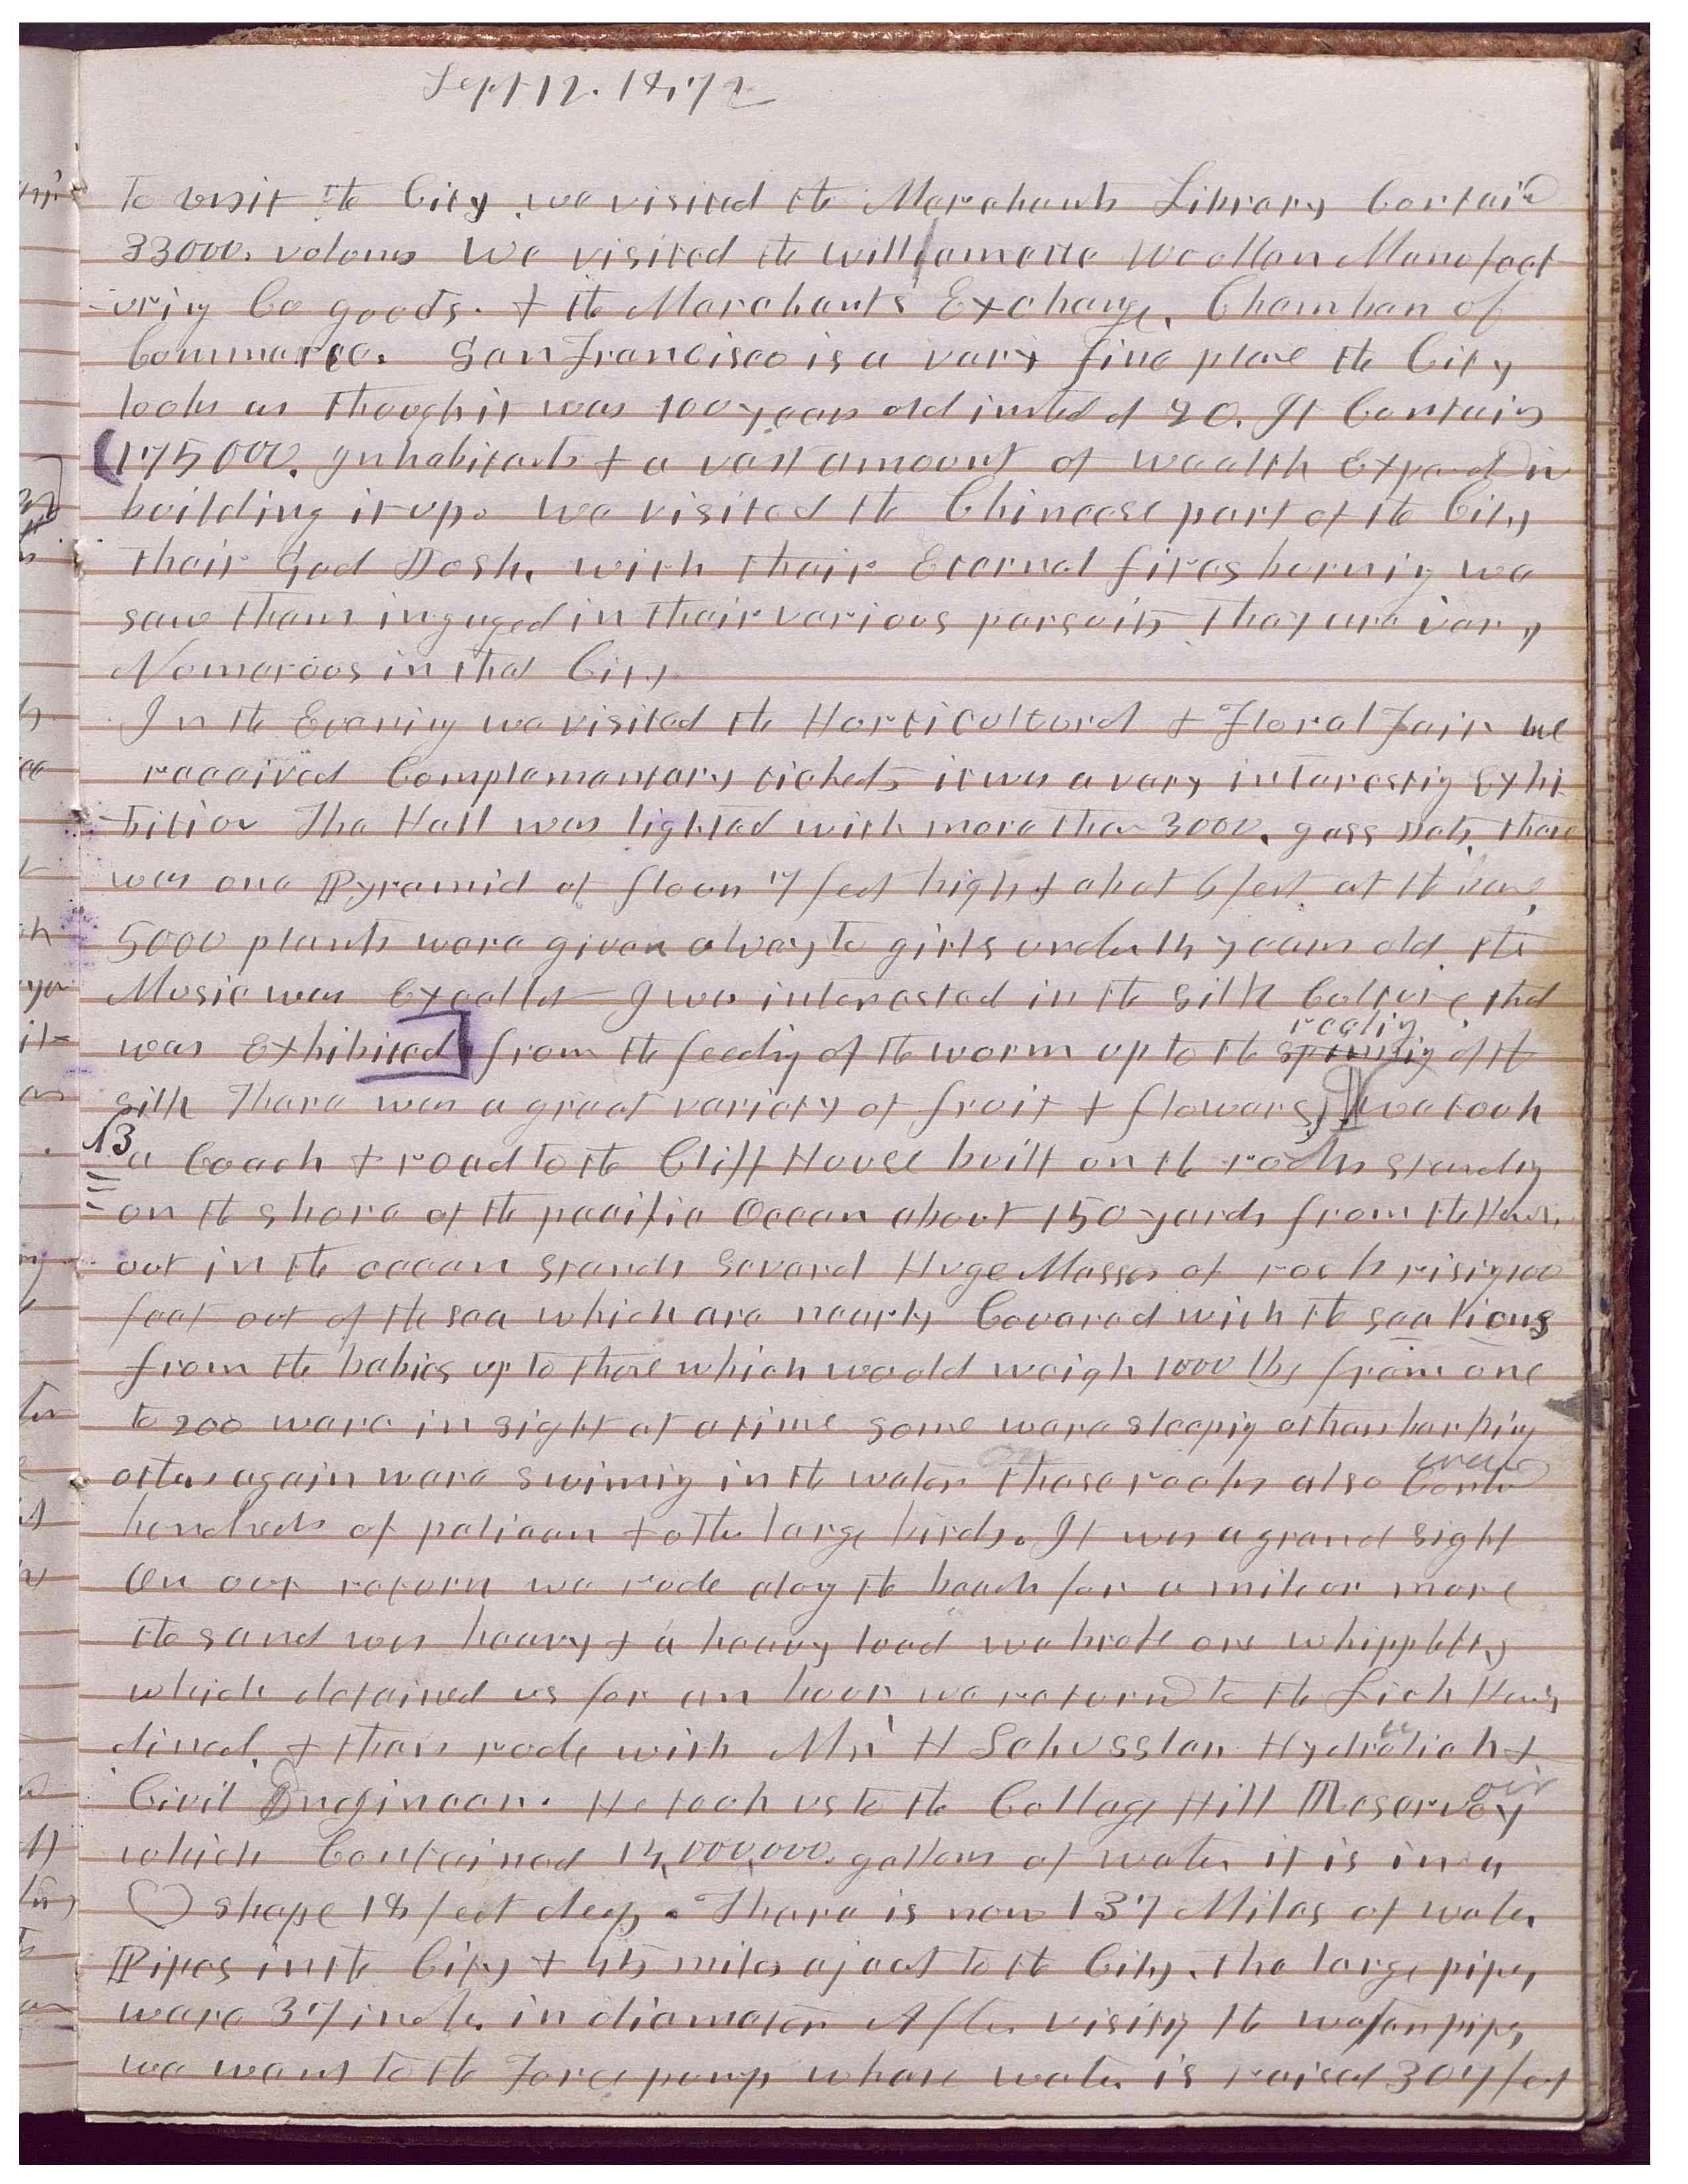 Sept 12. 1872
to visit the City we visited the Merchants Library Contain
33000. volams We visited the Willamette Woollen Manufact
uring Co goods. + the Merchants Exchange. Chamber of
Commerce. San Francisco is a very fine place the City
looks as though it was 100 years old insted of 20. It Contains
(175000. Inhabitants + a vast amount of wealth Expend in
building it up. We visited the Chineese part of the City
their God Josh. with their Eternal fires burning we
saw them inguged in their various parsuits They are very
Numerous in that City
In the Evening we visited the Horticultural + Floral Fair we
received Complementary tickets it was a very interesting Exhi
bition The Hall was lighted with more than 3000. gass Jets. there
was one Pyramid of floer 7 feet high + abot 6 feet at the
5000 plants were given away to girls under 14 years old the
Music was Excellet I was interested in the Silk Culture that
was Exhibited from the feeding of the worm up to the spining of the
reeling
silk There was a great variety of fruit + flowers, we took
13
a Coach + road to the Cliff House built on the rocks standing
on the shore of the pacific Ocean about 150 yards from the House
out in the ocean stands Several Huge Masses of rock rising 100
feet out of the sea which are nearly Covered with the sea Lions
from the babies up to those which would weigh 1000 lbs from one
to 200 were in sight at a time some were sleeping others barking
others again were swiming in the water These rocks also
hundreds of pelican + other large birds. It was a grand sight
On our return we rode along the beach for a mile or more
the sand was heavy + a heavy load we broke one whippltry
which detained us for an hour we returned to the Lick House
dined. + then rode with Mr H Schussler Hydraulick +
Civil Engineer. He took us to the Collage Hill Reservoir
which Contained 14,000,000. gallons of water it is in a
♡ shape 18 feet deep. There is now 137 Miles of water
Pipes in the City + 45 miles ajact to the City. the large pipes
were 37 inches in diameter After visiting the water pipes
we went to the Force pump where water is raised 307 feet